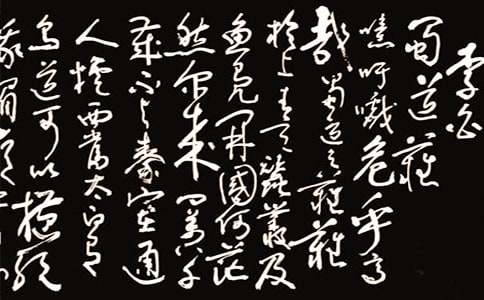 李白
蜀道難
噫吁嚱危乎高
哉蜀道之難難
於上青天蠶叢及
魚鳧開國何茫
然尔来四萬八千
歲不与秦塞通
人煙西當太白有
鳥道可以橫絶
峨眉巔